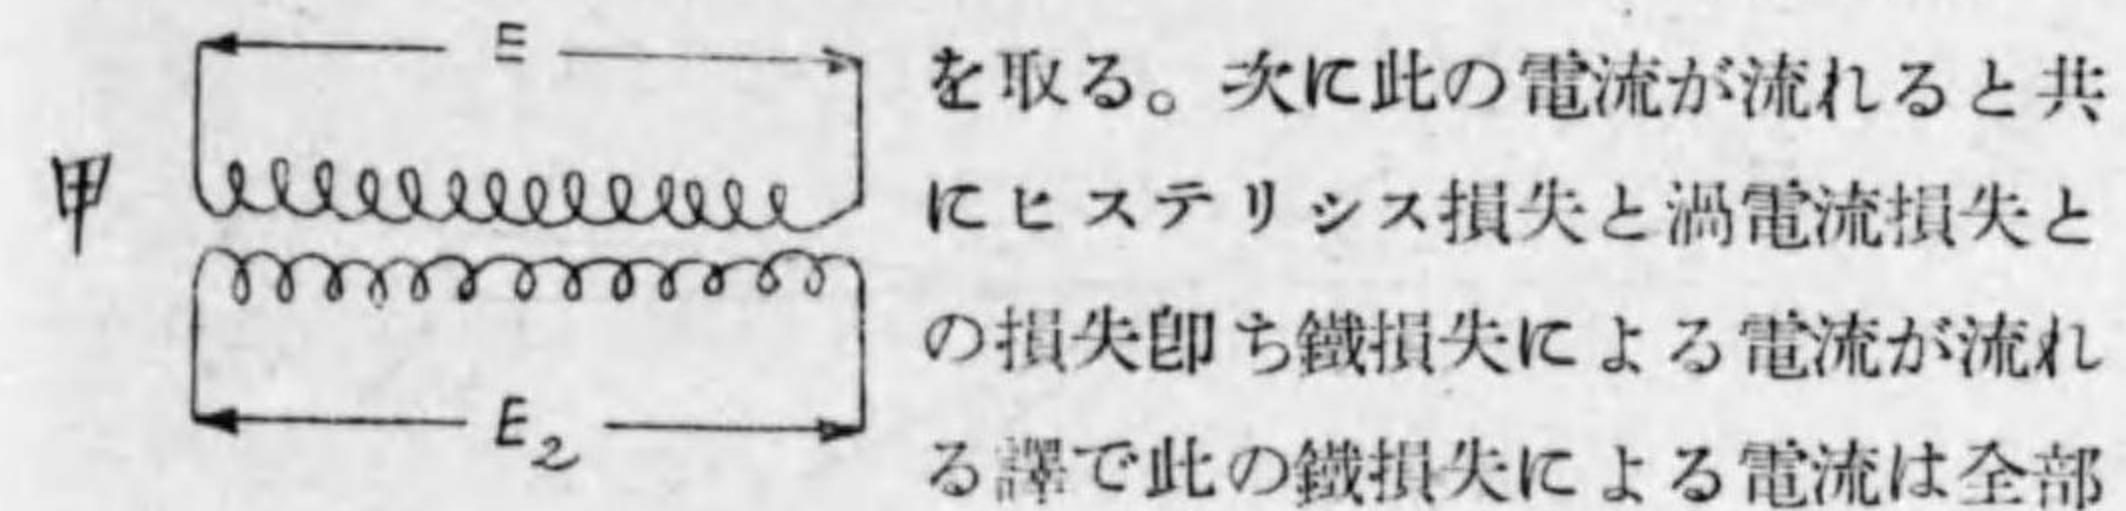 を取る。次に此の電流が流れると共
にヒステリシス損失と渦電流損失と
の損失卽ち鐵損失による電流が流れ
る譯で此の鐵損失による電流は全部
甲
E
E₂